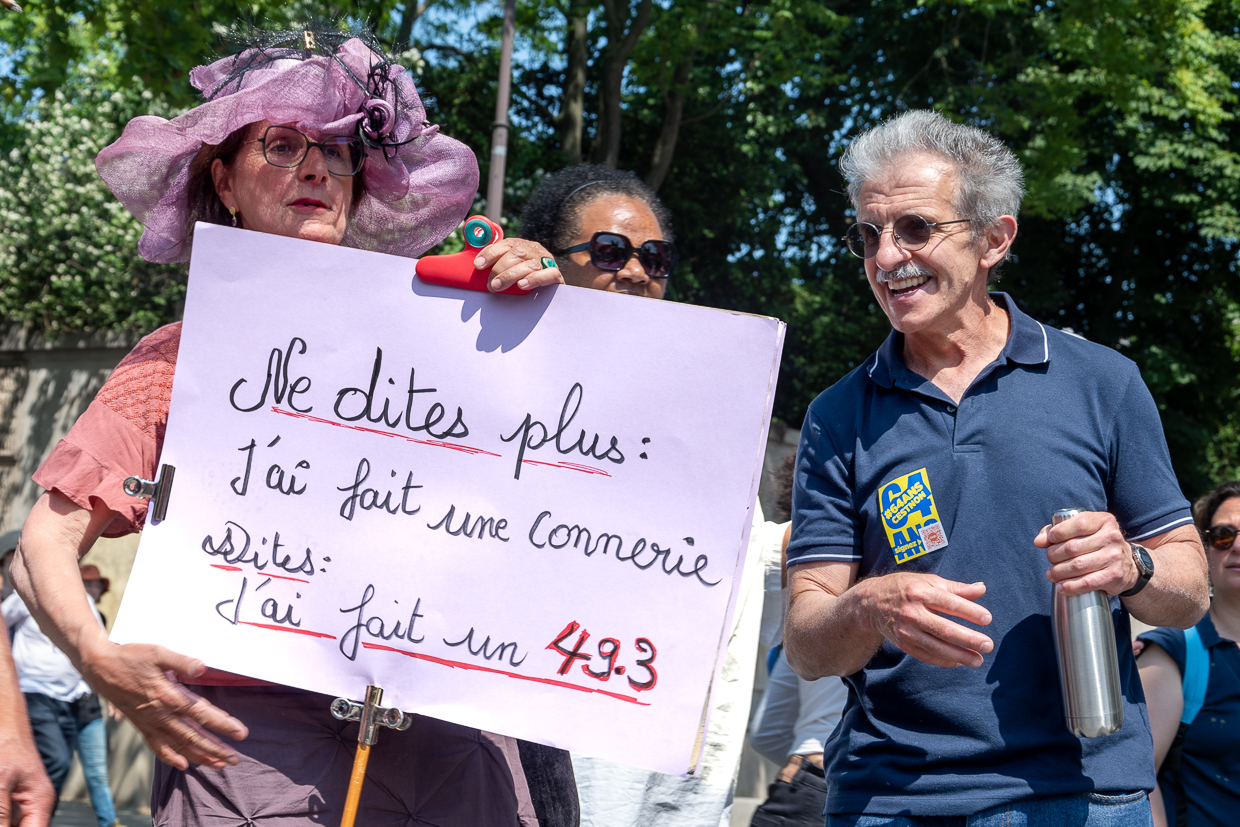 Ne dites plus :
J'ai fait une connerie
Dites :
J'ai fait un 49.3
64
#64ANS
C'EST NON
ANS
signez